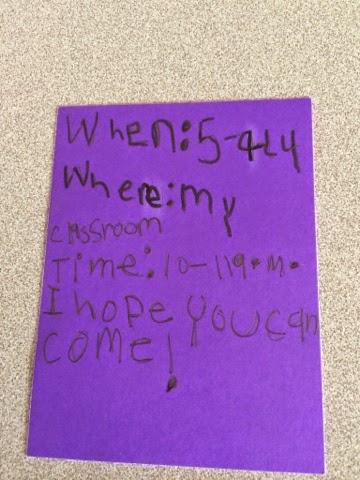 When: 5-9-14
Where: my
classroom
Time: 10-11 a.m.
I hope you can
come!